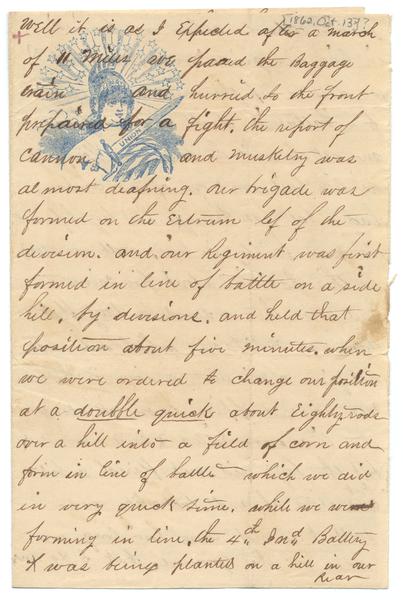 [1862, Oct. 13??]
Well it is as I Expected after a march
of 11 Miles we passed the Baggage
train and hurried to the front
prepaired for a fight. the report of
Cannon and musketry was
almost deafning. our brigade was
formed on the Extrum lef of the
division. and our Regiment was first
formed in line of battle on a side
hill. by divisions. and held that
position about five minutes. when
we were ordered to change our position
at a doubble quick about Eighty rods
over a hill into a field of corn and
form in line of battle which we did
in very quick time. while we were
forming in line. the 4th Ind Battery
was being planted on a hill in our
rear
UNION